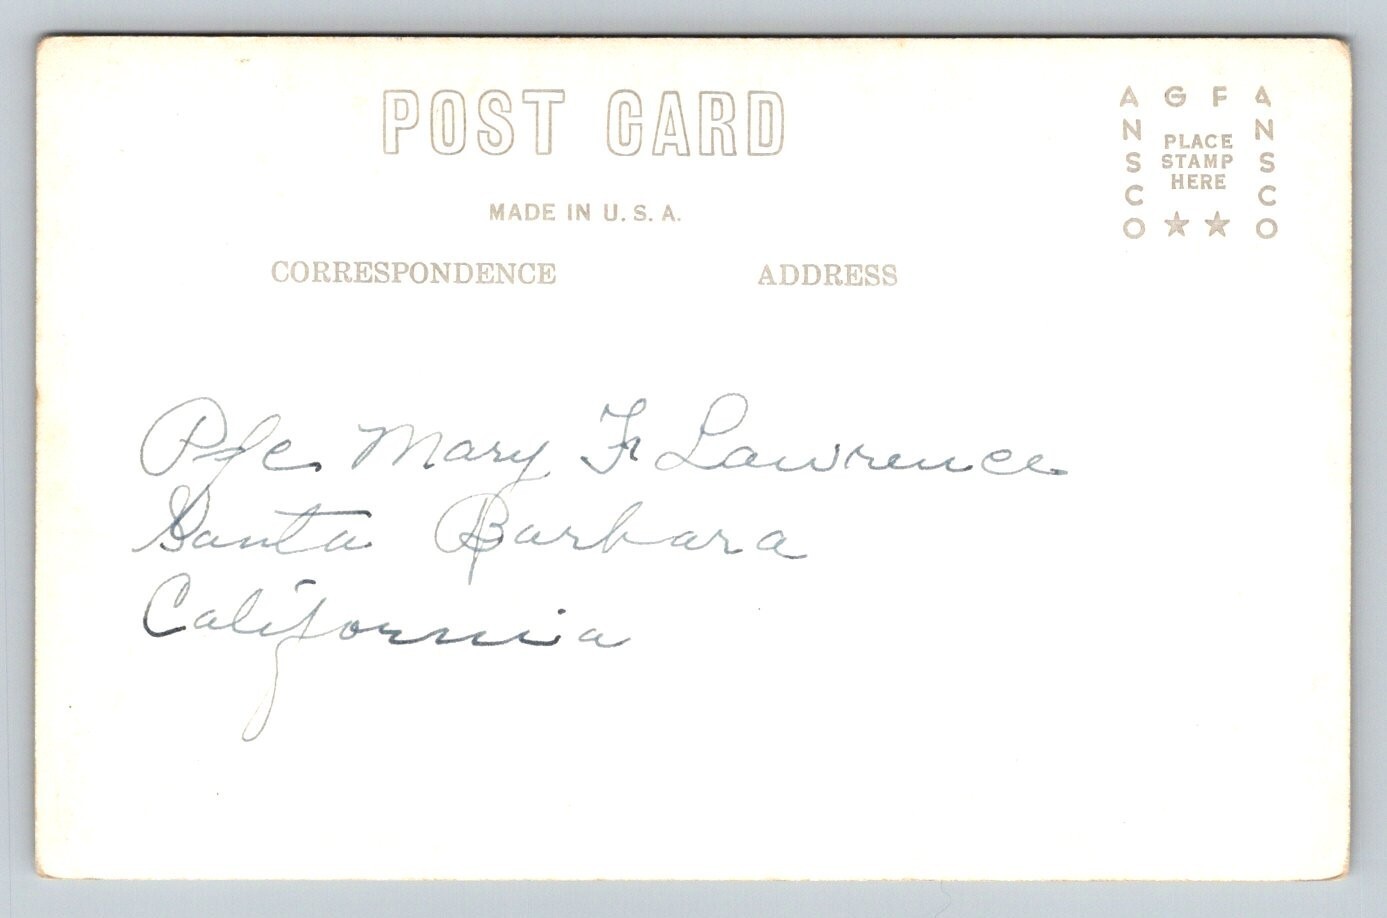 POST CARD
MADE IN U.S.A.
CORRESPONDENCE ADDRESS
AGFA
ANSCO
ANSCO
PLACE
STAMP
HERE
Pfc. Mary F. Lawrence
Santa Barbara
California